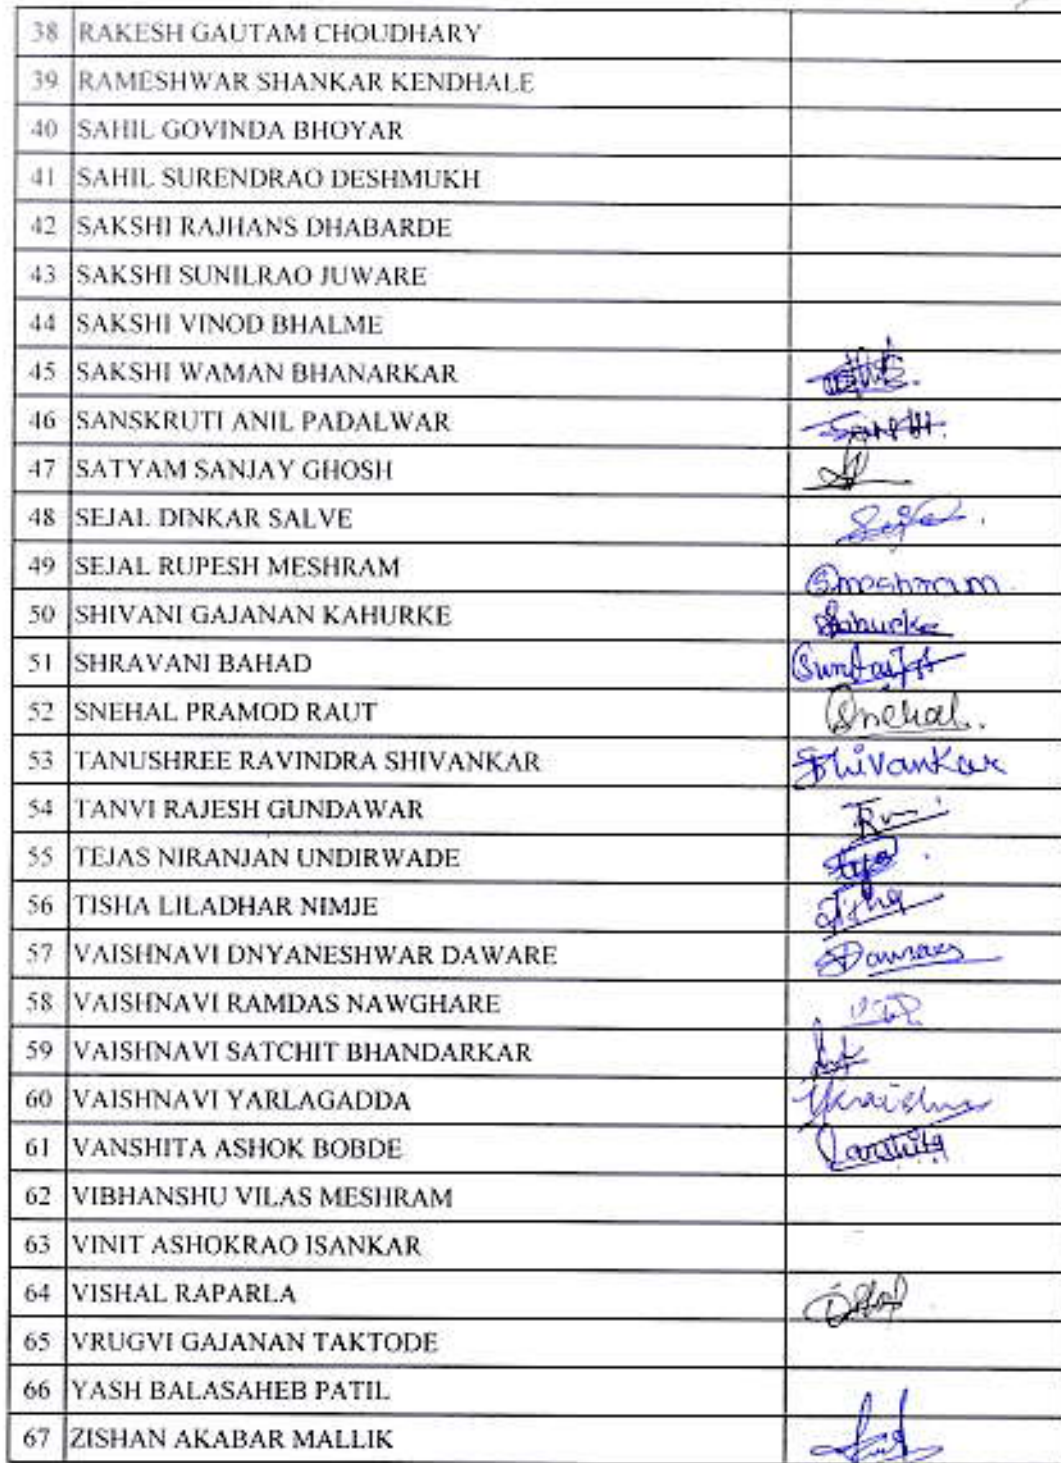 38 RAKESH GAUTAM CHOUDHARY
39 RAMESHWAR SHANKAR KENDHALE
40 SAHIL GOVINDA BHOYAR
41 SAHIL SURENDRAO DESHMUKH
42 SAKSHI RAJHANS DHABARDE
43 SAKSHI SUNILRAO JUWARE
44 SAKSHI VINOD BHALME
45 SAKSHI WAMAN BHANARKAR
46 SANSKRUTI ANIL PADALWAR
47 SATYAM SANJAY GHOSH
48 SEJAL DINKAR SALVE
49 SEJAL RUPESH MESHRAM Smeshram
50 SHIVANI GAJANAN KAHURKE
51 SHRAVANI BAHAD
52 SNEHAL PRAMOD RAUT Snehal.
53 TANUSHREE RAVINDRA SHIVANKAR Shivankar
54 TANVI RAJESH GUNDAWAR
55 TEJAS NIRANJAN UNDIRWADE
56 TISHA LILADHAR NIMJE Tisha
57 VAISHNAVI DNYANESHWAR DAWARE
58 VAISHNAVI RAMDAS NAWGHARE
59 VAISHNAVI SATCHIT BHANDARKAR
60 VAISHNAVI YARLAGADDA
61 VANSHITA ASHOK BOBDE
62 VIBHANSHU VILAS MESHRAM
63 VINIT ASHOKRAO ISANKAR
64 VISHAL RAPARLA
65 VRUGVI GAJANAN TAKTODE
66 YASH BALASAHEB PATIL
67 ZISHAN AKABAR MALLIK